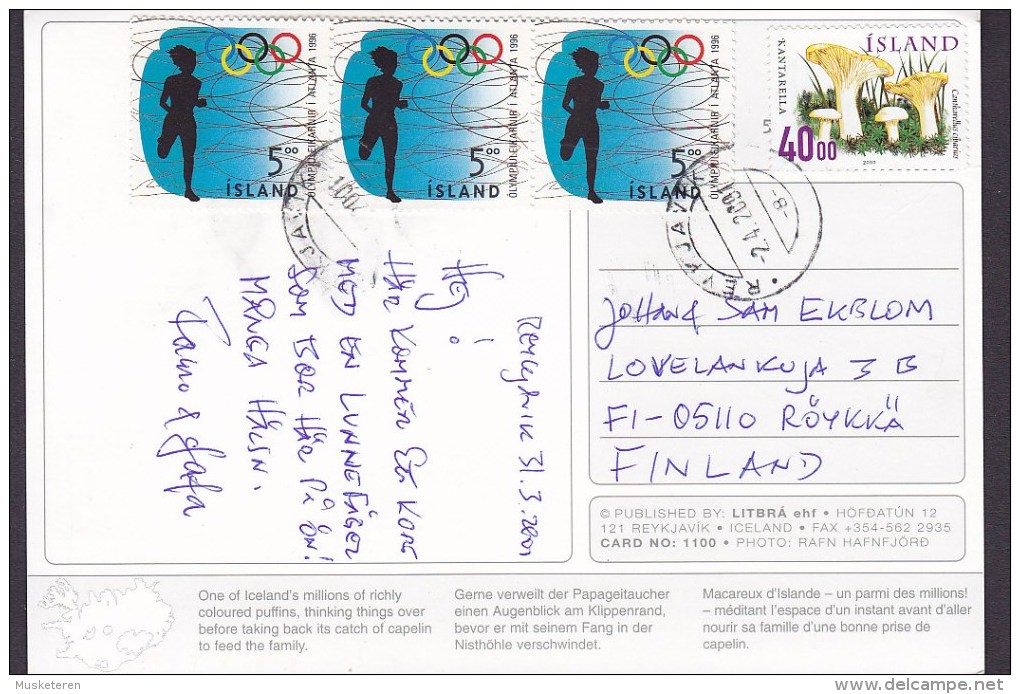 ÓLYMPÍULEIKARNIR Í ATLANTA 1996
5.00
ÍSLAND
ÓLYMPÍULEIKARNIR Í ATLANTA 1996
5.00
ÍSLAND
ÓLYMPÍULEIKARNIR Í ATLANTA 1996
5.00
ÍSLAND
ÍSLAND
KANTARELLA
Cantharellus cibarius
4000
2000
REYKJAVÍK
2.4.2001
-8-
REYKJAVIK 31.3.2001
HEJ!
HÄR KOMMER ETT KORT
MED EN LUNNEFÅGEL
SOM BOR HÄR PÅ ÖN!
MÅNGA HÄLSN.
JOHAN & SAM EKBLOM
LOVELANKUJA 3 B
FI-05110 RÖYKKÄ
FINLAND
© PUBLISHED BY: LITBRÁ ehf • HÖFÐATÚN 12
121 REYKJAVÍK • ICELAND • FAX +354-562 2935
CARD NO: 1100 • PHOTO: RAFN HAFNFJÖRÐ
One of Iceland's millions of richly
coloured puffins, thinking things over
before taking back its catch of capelin
to feed the family.
Gerne verweilt der Papageitaucher
einen Augenblick am Klippenrand,
bevor er mit seinem Fang in der
Nisthöhle verschwindet.
Macareux d'Islande – un parmi des millions!
– méditant l'espace d'un instant avant d'aller
nourir sa famille d'une bonne prise de
capelin.
Musketeren
delcampe.net